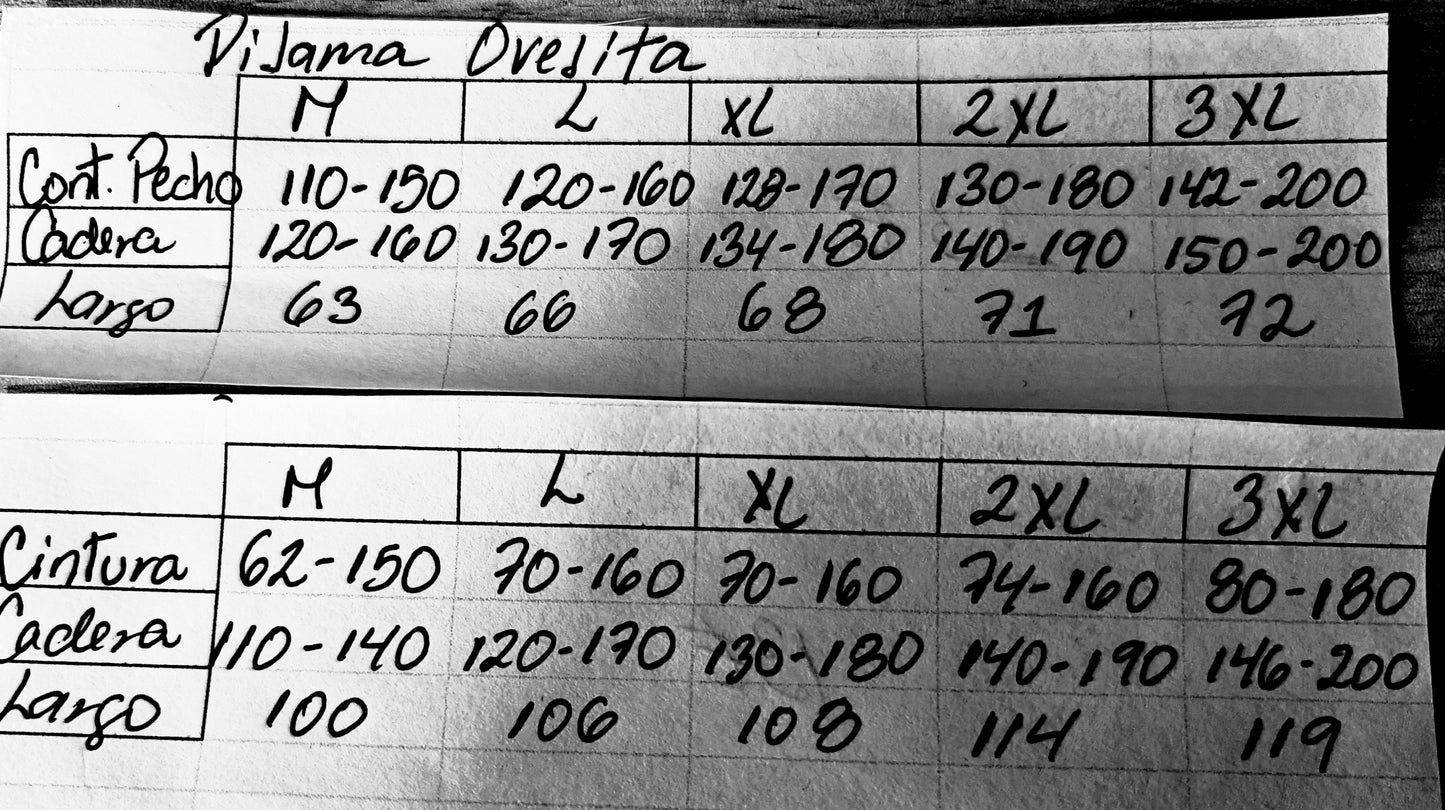 Pijama Ovejita
M L XL 2XL 3XL
Cont. Pecho 110-150 120-160 128-170 130-180 142-200
Cadera 120-160 130-170 134-180 140-190 150-200
Largo 63 66 68 71 72
M L XL 2XL 3XL
Cintura 62-150 70-160 70-160 74-160 80-180
Cadera 110-140 120-170 130-180 140-190 146-200
Largo 100 106 108 114 119